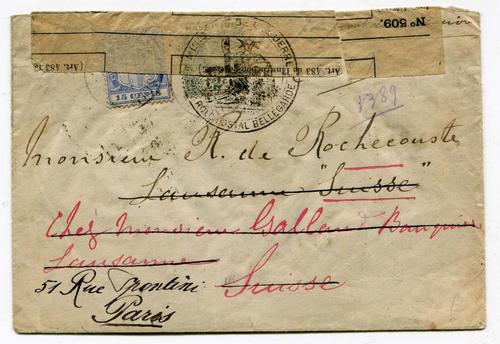 (Art. 483
(Art. 483 de
No 509.
15 CENTS
POSTAL BELLEGARDE
1389
Monsieur R. de Rochecouste
Lausanne "Suisse"
Chez Monsieur Galland Banquier
Lausanne
Suisse
51 Rue
Paris